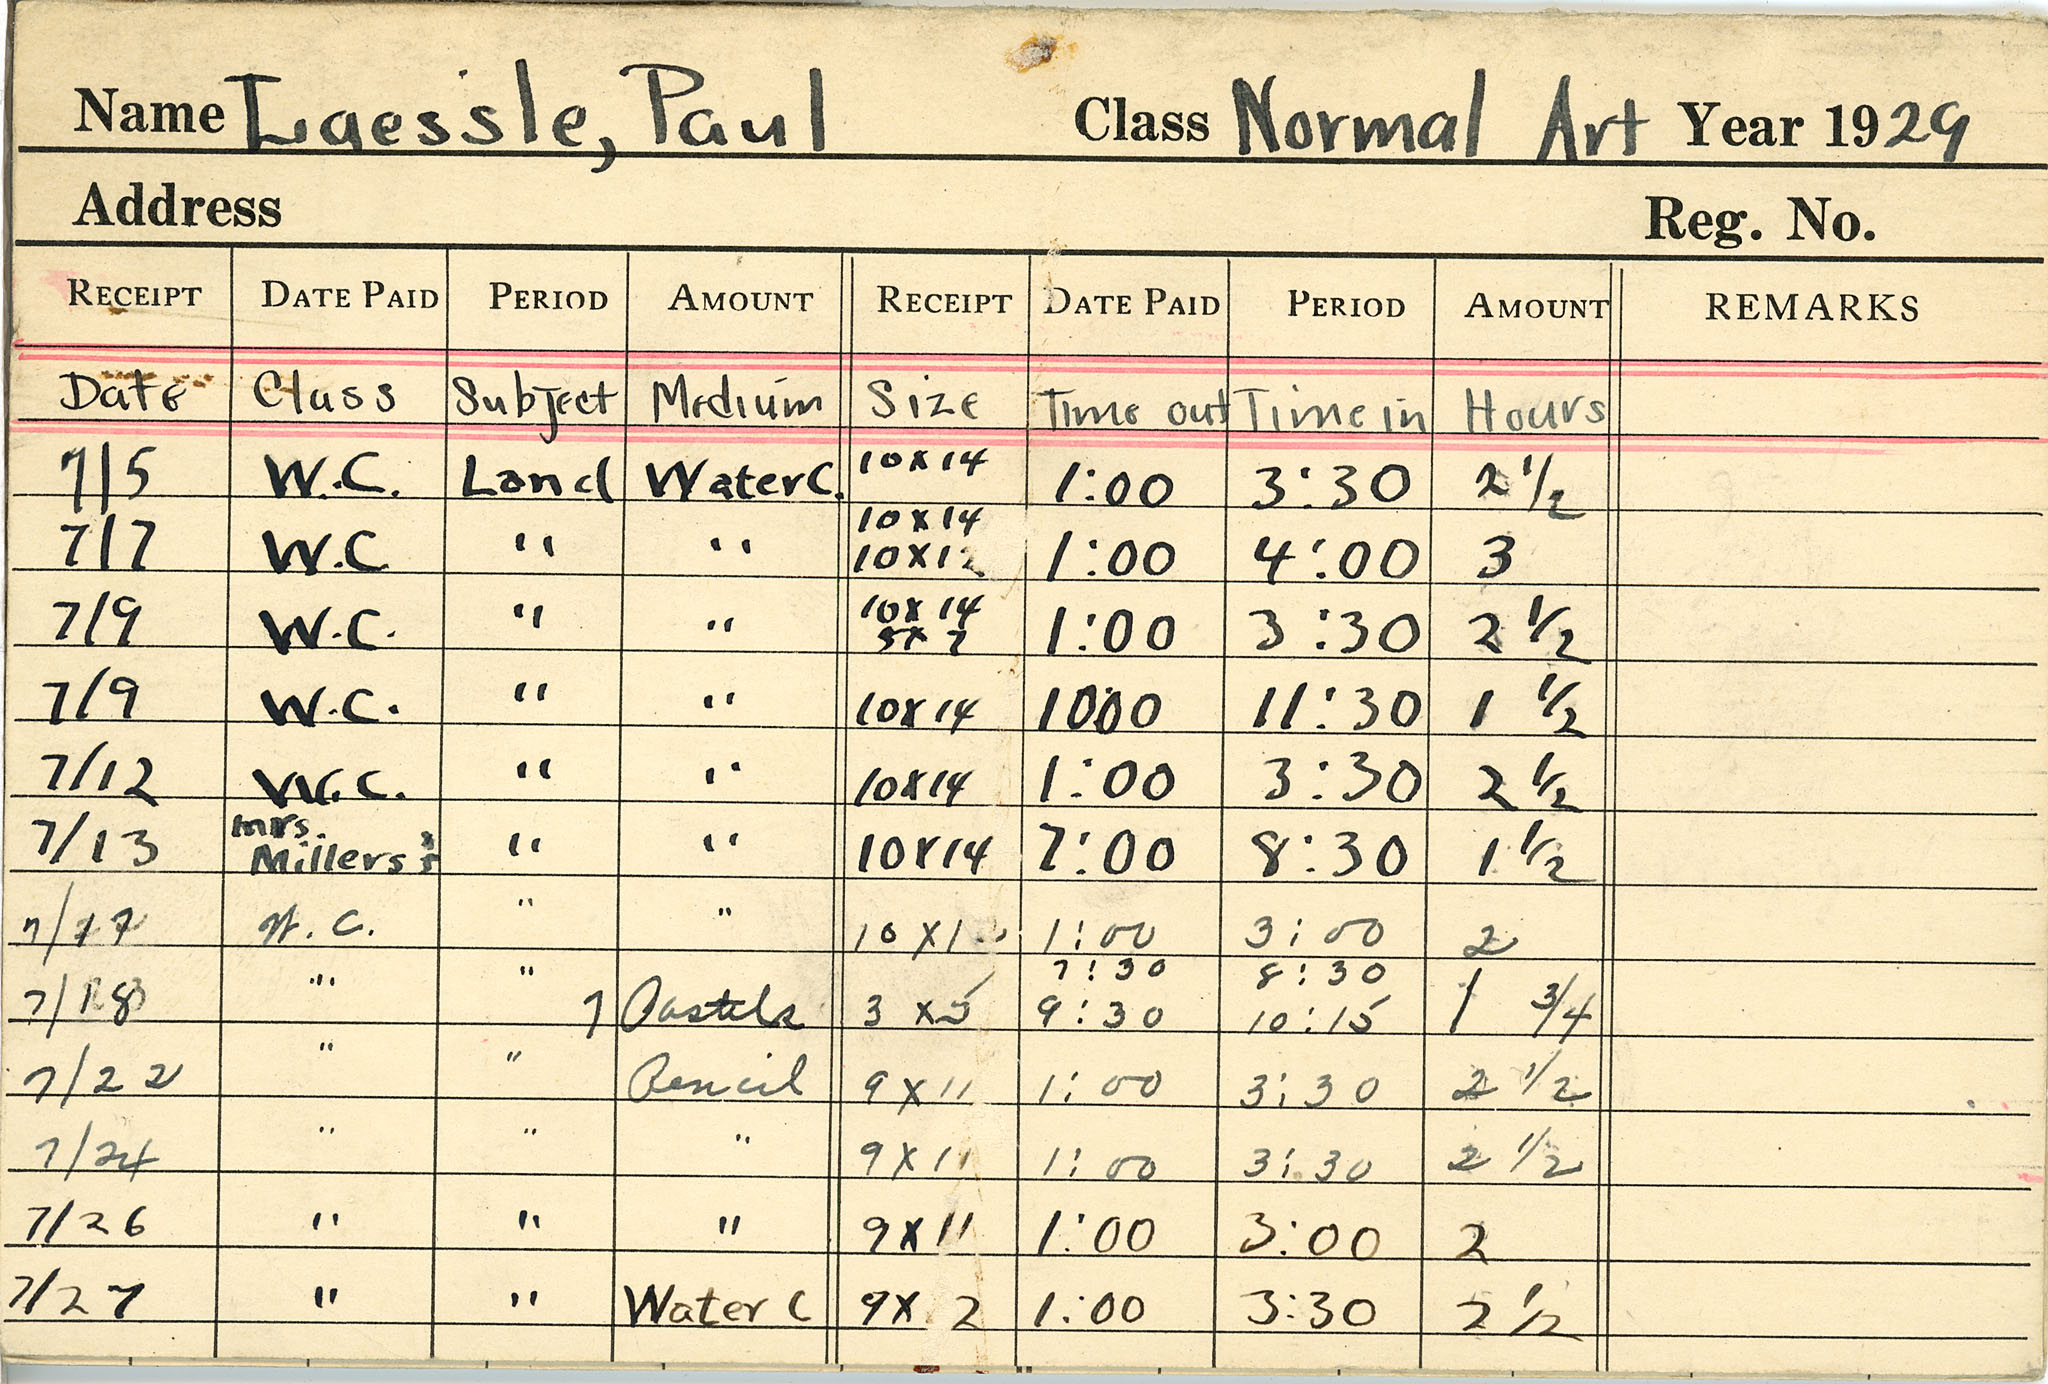 Name Laessle, Paul Class Normal Art Year 1929
Address Reg. No.
RECEIPT DATE PAID PERIOD AMOUNT RECEIPT DATE PAID PERIOD AMOUNT REMARKS
Date Class Subject Medium Size Time out Time in Hours
7/5 W.C. Land Water C. 10x14 1:00 3:30 2 1/2
10x14
7/7 W.C " " 10x12 1:00 4:00 3
10x14
7/9 W.C. " " 5x7 1:00 3:30 2 1/2
7/9 W.C. " " 10x14 10:00 11:30 1 1/2
7/12 W.C. " " 10x14 1:00 3:30 2 1/2
Mrs.
7/13 Millers's " " 10x14 7:00 8:30 1 1/2
7/17 W.C. " " 10 x 1:00 3:00 2
7:30 8:30
7/18 " " Pastels 3 x 5 9:30 10:15 1 3/4
7/22 " " Pencil 9 x 11 1:00 3:30 2 1/2
7/24 " " " 9 x 11 1:00 3:30 2 1/2
7/26 " " " 9 x 11 1:00 3:00 2
7/27 " " Water C 9 x 2 1:00 3:30 2 1/2